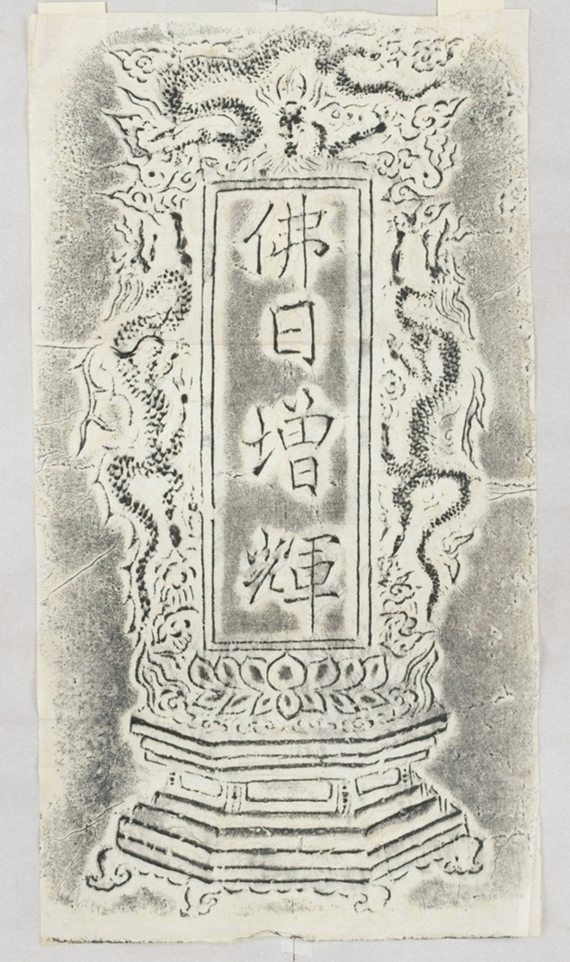 佛日增輝